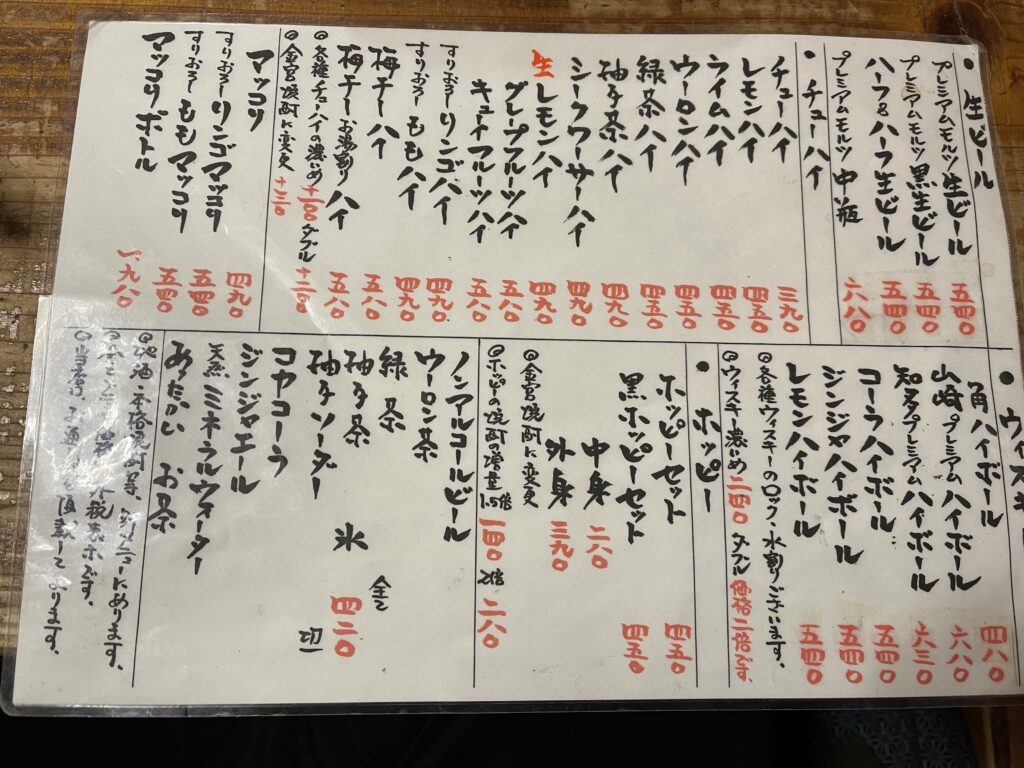 ・生ビール
プレミアムモルツ生ビール 五四〇
プレミアムモルツ黒生ビール 五四〇
ハーフ&ハーフ生ビール 五四〇
プレミアムモルツ 中瓶 六八〇
・チューハイ
チューハイ 三九〇
レモンハイ 四五〇
ライムハイ 四五〇
ウーロンハイ 四五〇
緑茶ハイ 四五〇
柚子茶ハイ 四九〇
シークワーサーハイ 四九〇
生レモンハイ 四九〇
グレープフルーツハイ 五八〇
キューイフルーツハイ 五八〇
すりおろしリンゴハイ 四九〇
すりおろしももハイ 四九〇
梅干ハイ 五八〇
梅干お湯割りハイ 五八〇
◎各種チューハイ濃いめ +一〇〇 ダブル +二〇〇
◎金宮焼酎に変更 +三〇
マッコリ 四九〇
すりおろしリンゴマッコリ 五四〇
すりおろしももマッコリ 五四〇
マッコリボトル 一、九八〇
・ウイスキ
角ハイボール 四八〇
山崎プレミアムハイボール 六八〇
知多プレミアムハイボール 六三〇
コーラハイボール 五四〇
ジンジャハイボール 五四〇
レモンハイボール 五四〇
◎各種ウィスキーのロック・水割りございます、
◎ウィスキー濃いめ 二四〇 ダブル 価格二倍です、
・ホッピー
ホッピーセット 四五〇
黒ホッピーセット 四五〇
中身 二八〇
外身 三九〇
◎金宮焼酎に変更
◎ホッピーの焼酎の増量1.5倍 一四〇 2倍 二八〇
ノンアルコールビール
ウーロン茶
緑茶 全て
柚子茶 氷 四二〇
柚子ソーダー 切
コカコーラ
ジンジャエール
天然ミネラルウォーター
あたたかい お茶
◎地酒・本格焼酎等 別メニューにあります、
外税表示です、
◎当店は 頂戴しております、